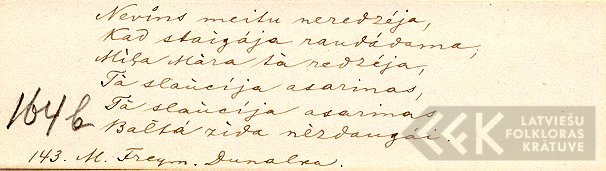 Nevins meitu neredzéja,
Kad staigája raudádama,
Mila Mára tà redzéja,
Tà slaùcija asarinas,
Tà slaùcija asarinas
Baltá zida
164 b
143. M. Freym. Dunalka.
LATVIEŠU
FOLKLORAS
KRĀTUVE